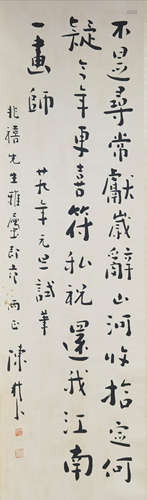 不是尋常獻歲辭山河收拾定何
疑今年更喜符私祝還我江南
一畫師
廿九年元旦試筆
兆禧先生雅屬即希兩正
陳樹人